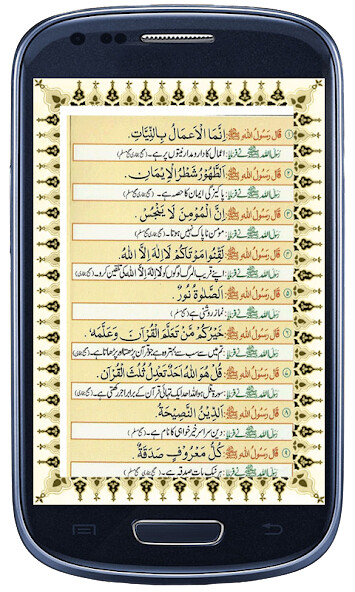 ۱ قَالَ رَسُوْلُ اللہِ ﷺ: اِنَّمَا الْاَعْمَالُ بِالنِّيَّاتِ.
رسول اللہ ﷺ نے فرمایا: اعمال کا دارومدار نیتوں پر ہے۔ (صحیح بخاری، صحیح مسلم)
۲ قَالَ رَسُوْلُ اللہِ ﷺ: اَلطُّهُوْرُ شَطْرُ الْاِيْمَانِ.
رسول اللہ ﷺ نے فرمایا: پاکیزگی ایمان کا حصہ ہے۔ (صحیح مسلم)
۳ قَالَ رَسُوْلُ اللہِ ﷺ: اِنَّ الْمُؤْمِنَ لَا يَنْجُسُ.
رسول اللہ ﷺ نے فرمایا: مؤمن ناپاک نہیں ہوتا۔ (صحیح بخاری، صحیح مسلم)
۴ قَالَ رَسُوْلُ اللہِ ﷺ: لَقِّنُوْا مَوْتَاكُمْ لَا اِلٰهَ اِلَّا اللهُ.
رسول اللہ ﷺ نے فرمایا: اپنے قریب المرگ لوگوں کو لَا اِلٰهَ اِلَّا اللهُ کی تلقین کرو۔ (صحیح مسلم)
۵ قَالَ رَسُوْلُ اللہِ ﷺ: اَلصَّلٰوةُ نُوْرٌ.
رسول اللہ ﷺ نے فرمایا: نماز روشنی ہے۔ (صحیح مسلم)
۶ قَالَ رَسُوْلُ اللہِ ﷺ: خَيْرُكُمْ مَّنْ تَعَلَّمَ الْقُرْآنَ وَعَلَّمَهٗ.
رسول اللہ ﷺ نے فرمایا: تم میں سے سب سے بہتر وہ ہے جو قرآن پڑھتا اور پڑھاتا ہے۔ (صحیح بخاری)
۷ قَالَ رَسُوْلُ اللہِ ﷺ: قُلْ هُوَ اللهُ اَحَدٌ تَعْدِلُ ثُلُثَ الْقُرْآنِ.
رسول اللہ ﷺ نے فرمایا: سورہ قل ھو اللہ احد ایک تہائی قرآن کے برابر اجر رکھتی ہے۔
۸ قَالَ رَسُوْلُ اللہِ ﷺ: اَلدِّيْنُ النَّصِيْحَةُ.
رسول اللہ ﷺ نے فرمایا: دین سراسر خیر خواہی کا نام ہے۔ (صحیح مسلم)
۹ قَالَ رَسُوْلُ اللہِ ﷺ: كُلُّ مَعْرُوْفٍ صَدَقَةٌ.
رسول اللہ ﷺ نے فرمایا: ہر نیک بات صدقہ ہے۔